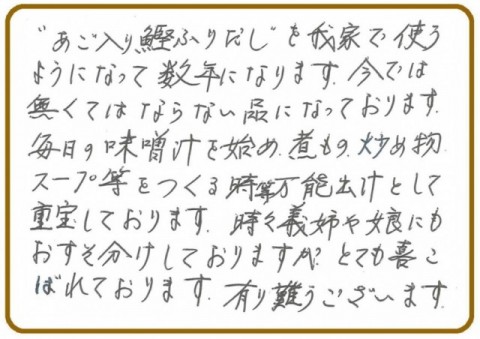 "あご入り鰹ふりだし"を我家で使う
ようになって数年になります.今では
無くてはならない品になっております.
毎日の味噌汁を始め.煮もの.炒め物
スープ等をつくる時等万能出汁として
重宝しております.時々義姉や娘にも
おすそ分けしておりますが?とても喜こ
ばれております.有り難うございます.